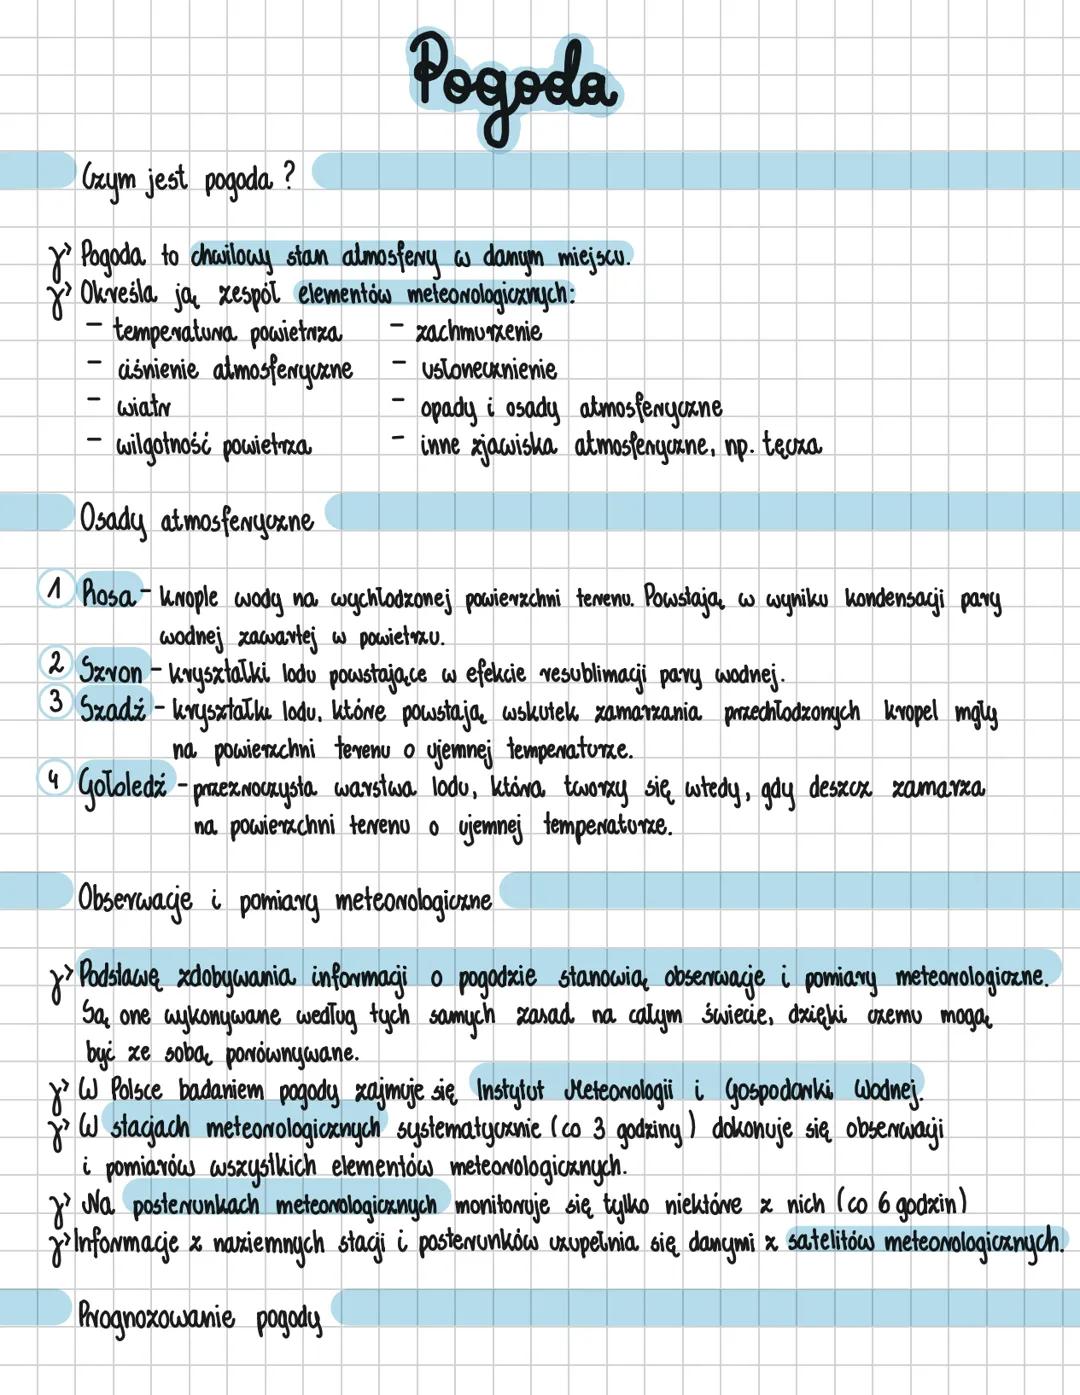 Pogoda
Czym jest pogoda?
Pogoda to chwilowy stan atmosfery w danym miejscu.
Określa ją zespół elementów meteorologicznych:
- temperatura powietrza - zachmurzenie
- ciśnienie atmosferyczne - usłonecznienie
- wiatr - opady i osady atmosferyczne
- wilgotność powietrza - inne zjawiska atmosferyczne, np. tęcza
Osady atmosferyczne
1 Rosa - krople wody na wychłodzonej powierzchni terenu. Powstają w wyniku kondensacji pary
wodnej zawartej w powietrzu.
2 Szron - kryształki lodu powstające w efekcie resublimacji pary wodnej.
3 Szadź - kryształki lodu, które powstają wskutek zamarzania przechłodzonych kropel mgły
na powierzchni terenu o ujemnej temperaturze.
4 Gołoledź - przezroczysta warstwa lodu, która tworzy się wtedy, gdy deszcz zamarza
na powierzchni terenu o ujemnej temperaturze.
Obserwacje i pomiary meteorologiczne
Podstawę zdobywania informacji o pogodzie stanowią obserwacje i pomiary meteorologiczne.
Są one wykonywane według tych samych zasad na całym świecie, dzięki czemu mogą
być ze sobą porównywane.
W Polsce badaniem pogody zajmuje się Instytut Meteorologii i Gospodarki Wodnej.
W stacjach meteorologicznych systematycznie (co 3 godziny) dokonuje się obserwacji
i pomiarów wszystkich elementów meteorologicznych.
Na posterunkach meteorologicznych monitoruje się tylko niektóre z nich (co 6 godzin)
Informacje z naziemnych stacji i posterunków uzupełnia się danymi z satelitów meteorologicznych.
Prognozowanie pogody